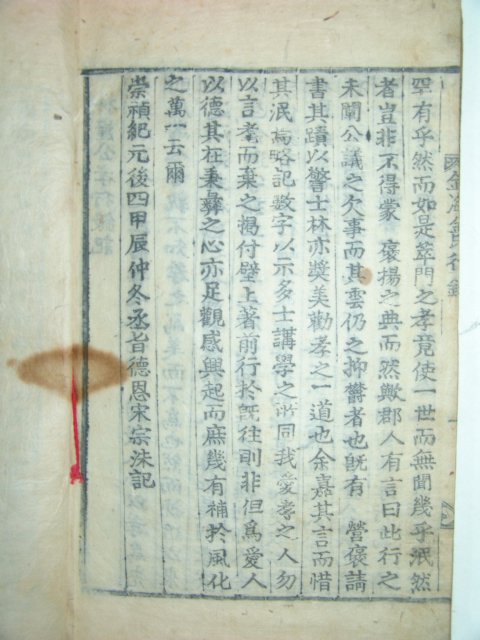 罕有乎然而如是萃門之孝竟使一世而無聞幾乎泯然
者豈非不得蒙 褒揚之典而然歟郡人有言曰此行之
未闡公議之欠事而其雲仍之抑欝者也旣有 營褒請
書其蹟以警士林亦奬美勸孝之一道也余嘉其言而惜
其泯略記數字以示多士講學之所同我愛孝之人勿
以言孝而棄之揭付壁上著前行於旣徃則非但爲愛人
以德其在秉彛之心亦足觀感興起而庶幾有補於風化
之萬一云爾
崇禎紀元後四甲辰仲冬丞旨德恩宋宗洙記